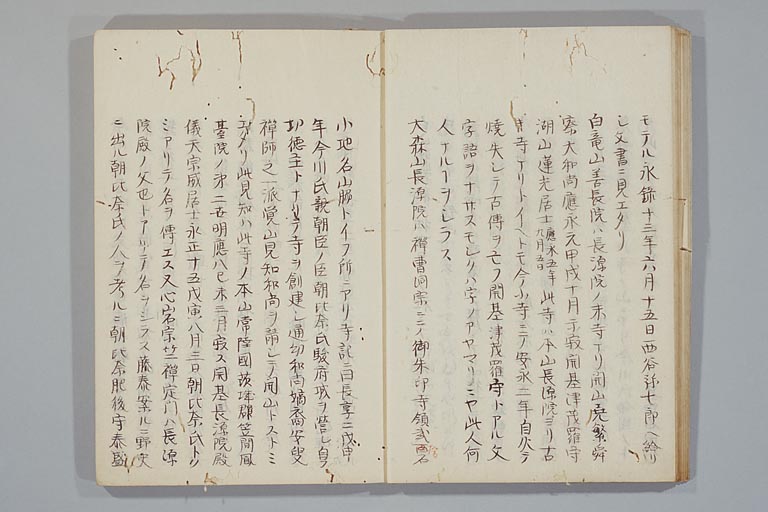 モテル永録十三年六月十五日西谷弥七郎ヘ給リ
シ文書ニ見エタリ
白竜山善長院ハ長源院ノ末寺ナリ開山虎繁舜
察大和尚應永元甲戌十月示寂開基津茂羅守
湖山蓮光居士應永五年九月五日此寺ハ本山長源院ヨリ古
キ寺ナリトイヘトモ今小寺ニテ安永二年自火テ
焼失シテ古傳ヲモフ開基津茂羅守トアル文
字語ヲナサスモシクハ字ノアヤマリニヤ此人何
人ナルヿヲシラス
大森山長源院ハ禅曹洞宗ニテ御朱印寺領弐百石
小地名山脇トイフ所ニアリ寺記ニ曰長享二戊申
年今川氏親朝臣ノ臣朝比奈氏駿府城ヲ営シ自ラ
功徳主トナリテ寺ヲ創建シ通幻和尚嫡裔安叟
禅師之一派覚山見知和尚ヲ請シテ開山トストミ
エタリ此見知ハ此寺ノ本山常陸國茨城郡笠間鳳
基院ノ第二世明應八己未三月寂ス開基長源院殿
儀天宗威居士永正十五戊寅八月三日朝比奈氏トノ
ミアリテ名ヲ傳エス又心岩宗廿二禅定門ハ長源
院殿ノ父也トアリテ名ヲシラス藤泰案ルニ野史
ニ出ル朝比奈氏ノ人ヲ考ルニ朝比奈肥後守泰盛